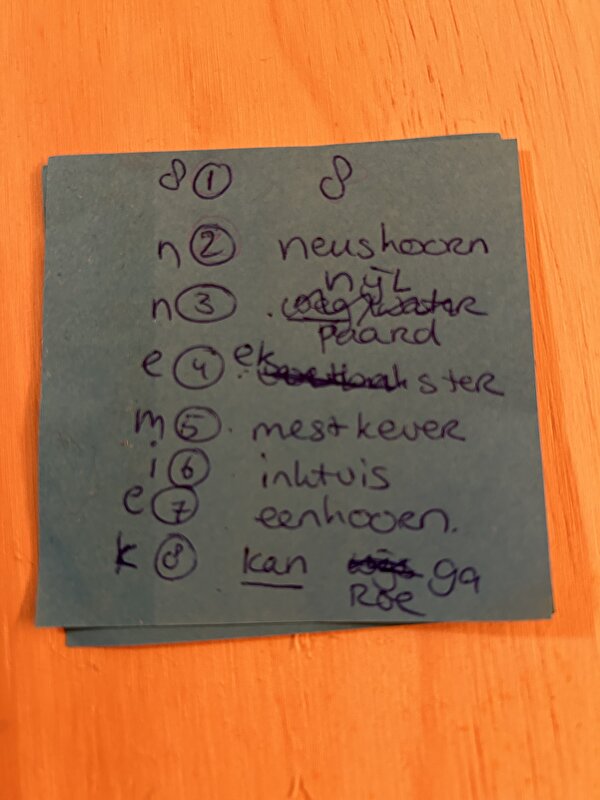 8 ① 8
n ② neushoorn
nijl
n ③ . water
paard
e ④ ekster
m ⑤ . mestkever
i ⑥ inktvis
e ⑦ eenhoorn.
k ⑧ kan ga
Roe